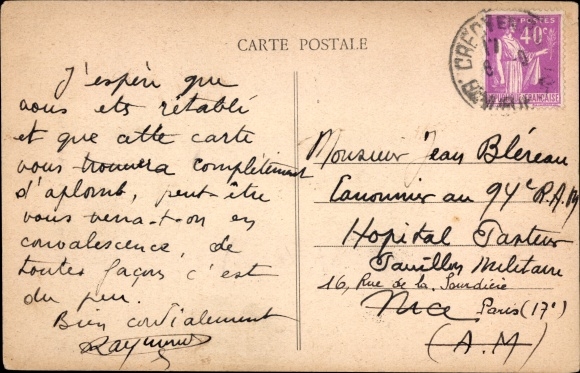 CARTE POSTALE
J'espère que
vous ets rétabli
et que cette carte
vous trouvera complètement
d'aplomb, peut-être
vous verra-t-on en
convalescence, de
toutes façons c'est
du peu.
Bien cordialement
Raymond
POSTES
40c
RÉPUBLIQUE FRANÇAISE
Monsieur Jean Bléreau
Canonnier au 94e R.A.M
Hopital Pasteur
Pavillon Militaire
16, Rue de la
Nice Paris (17e)
(A.M)